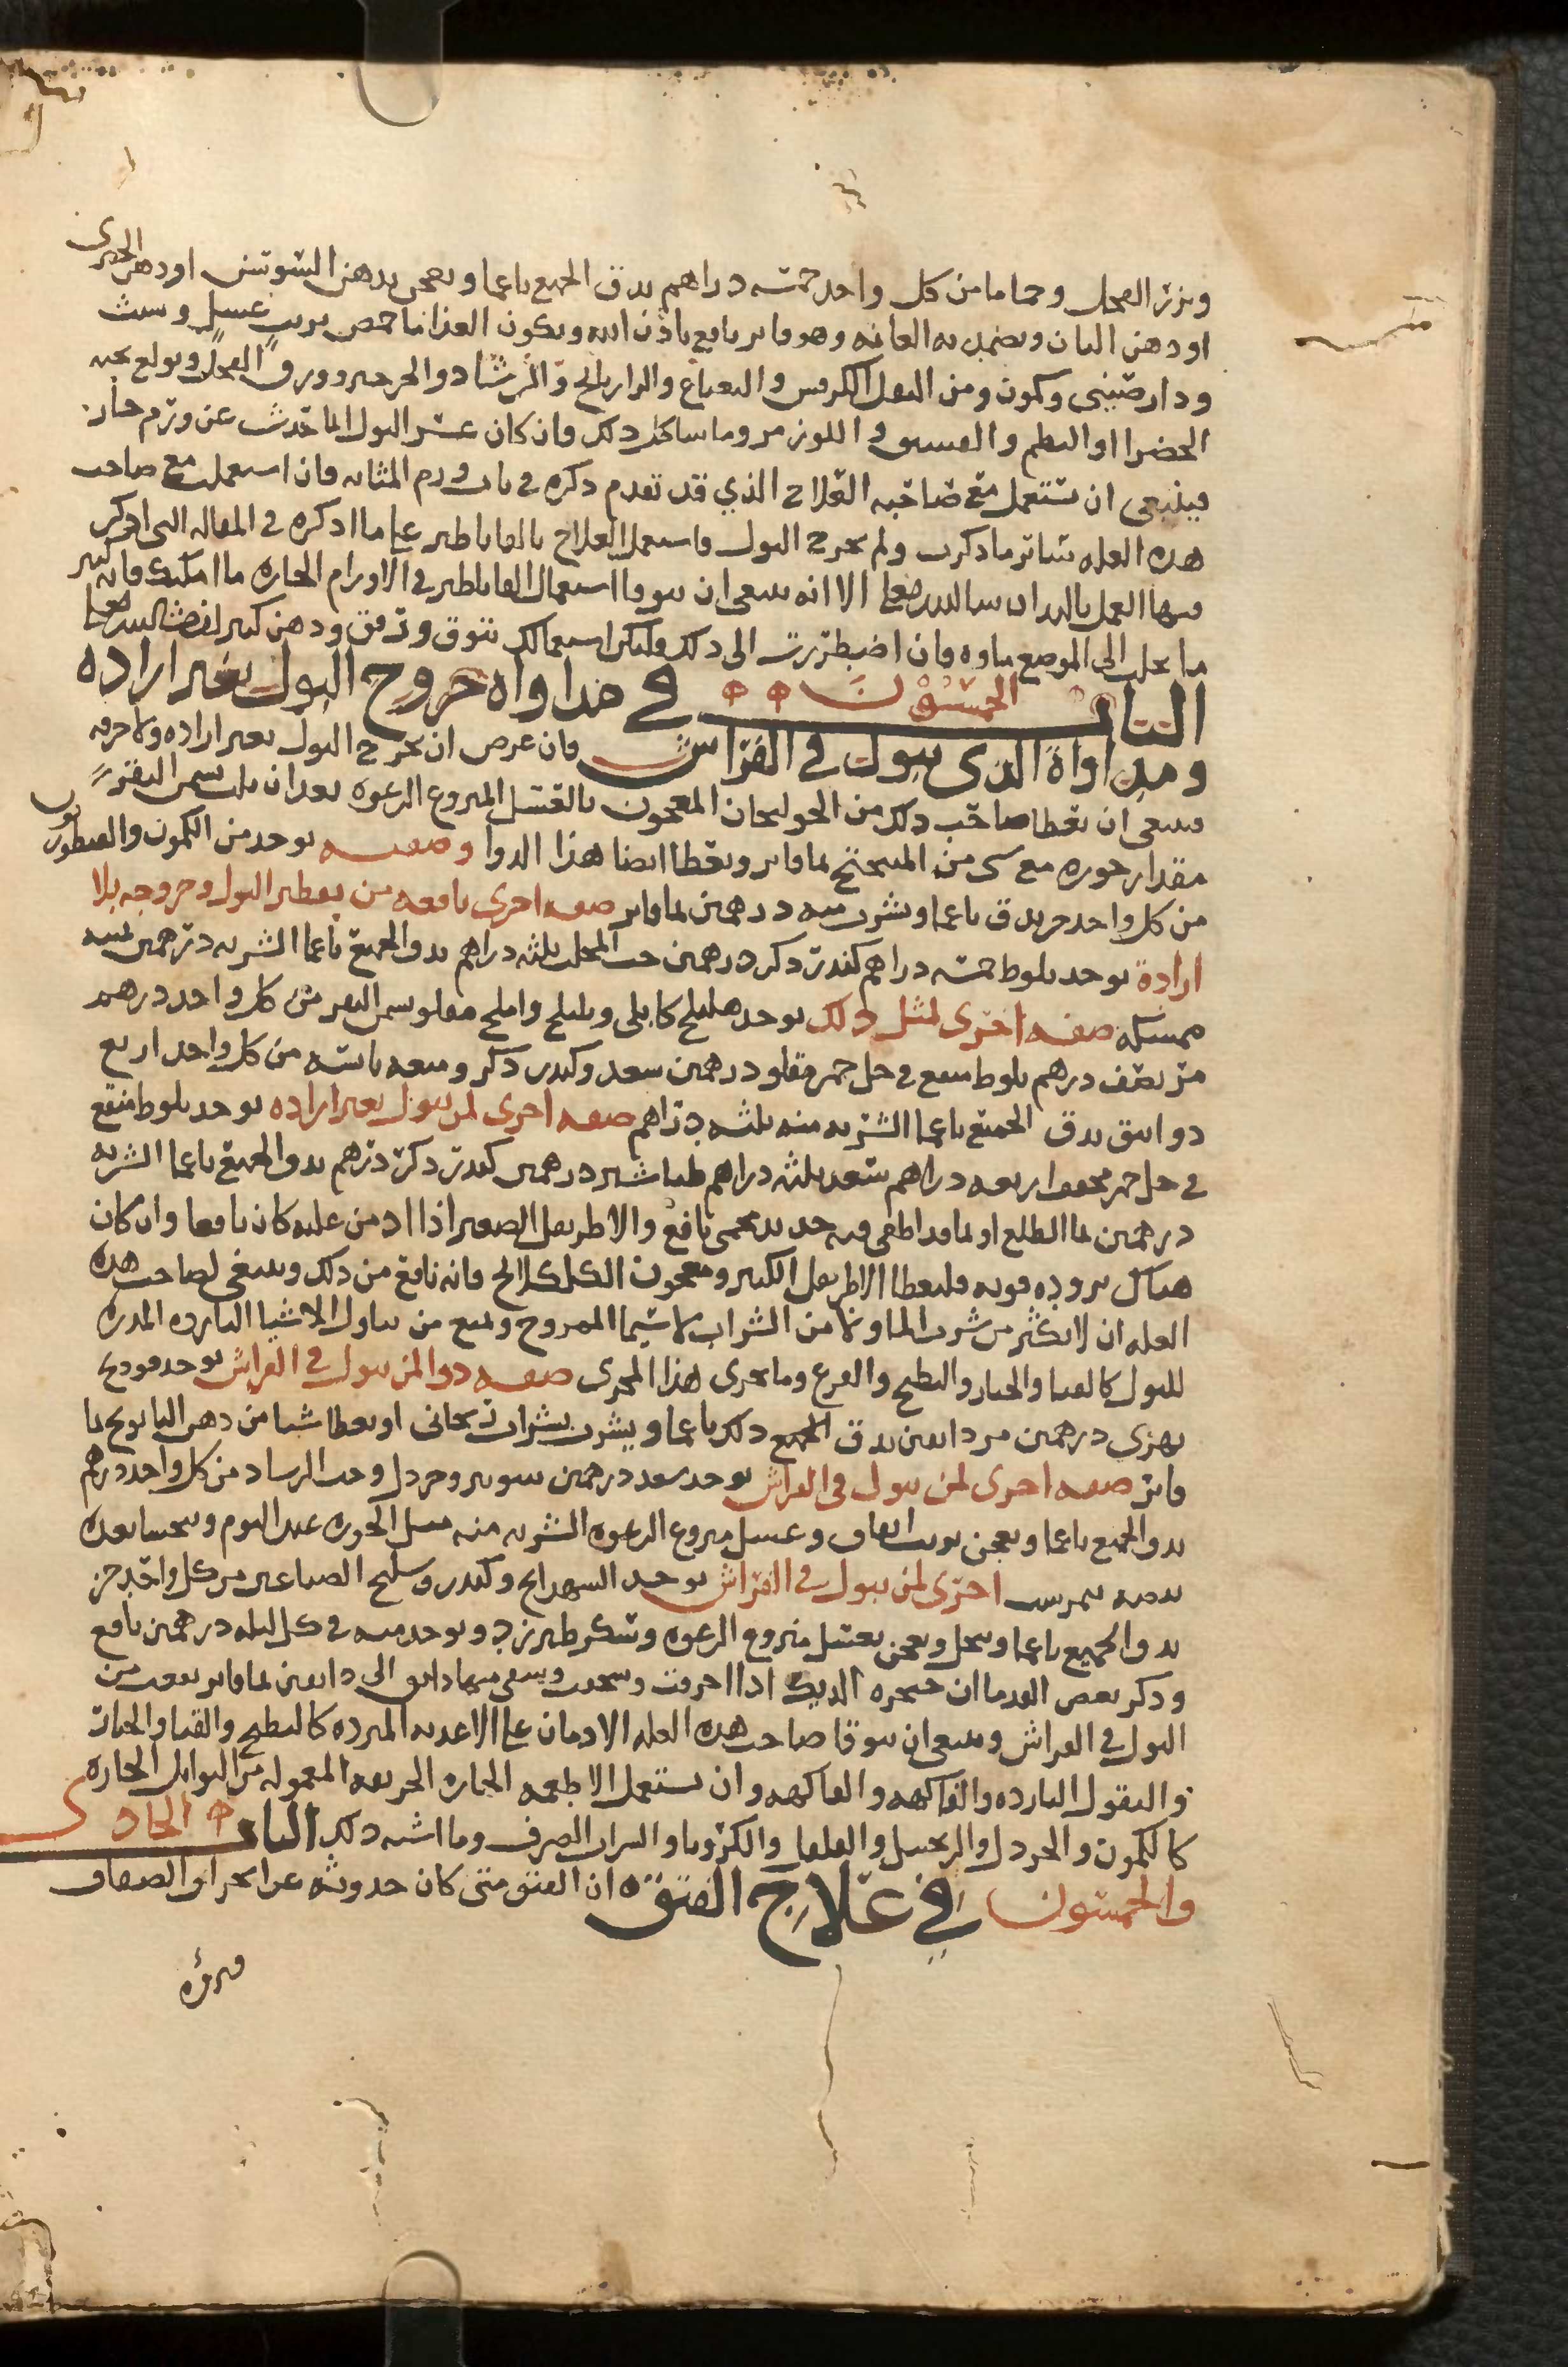 وبزر الفجل وحماما من كل واحد خمسه دراهم يدق الجميع ناعما ويعجن بدهن السوسن او دهن الخيرى
او دهن البان ويضمد به العانه وهو فاتر نافع باذن الله ويكون الغذا ما حمص بزيت عسل وشبث
ودارصينى وكمون ومن البقل الكرفس والنعناع والرازيانج والرشاد والجرجير وورق الفجل ويولع بحبه
الخضرا او البطم والفستق واللوز مر وما شاكل ذلك فان كان عسر البول انما حدث عن ورم حار
فينبغى ان تستعمل مع صاحبه العلاج الذي قد تقدم ذكره في باب ورم المثانه فان استعملت مع صاحب
هذه العله سائر ما ذكرت ولم يخرج البول فاستعمل العلاج بالقاثاطير على ما اذكره في المقاله التى اذكر
فيها العمل باليد ان شا الله تعالى الا انه ينبغى ان تتوقا استعمال القاثاطير في الاورام الحاره ما امكنك فانه كثير
ما يجلب الى الموضع ماده فان اضطررت الى ذلك وليكن استعمالك بتوق وترفق ودهن كثير ان شا الله تعالى
الباب الخمسون في مداواه خروج البول بغير اراده
ومداواة الذى يبول في الفراش فان عرض ان يخرج البول بغير اراده ولا حرقه
فينبغى ان يعطا صاحب ذلك من الخولنجان المعجون بالعسل المنزوع الرغوه بعد ان يلت بسمن البقر
مقدار جوزه مع شى من الميبختج بما فاتر ويعطا ايضا هذا الدوا وصفته يوخذ من الكمون والقنطوريون
من كل واحد جز يدق ناعما ويشرب منه درهمين بما فاتر صفه اخرى نافعه من تقطير البول وخروجه بلا
ارادة يوخذ بلوط خمسه دراهم كندر ذكر درهمين حب المحلب ثلثه دراهم يدق الجميع ناعما الشربه درهمين
ممسكه صفه اخرى لمثل ذلك يوخذ هليلج كابلى وبليلج واملج مقلو بسمن البقر من كل واحد درهم
مر نصف درهم بلوط منقع في خل خمر مقلو درهمين سعد وكندر ذكر وميعه يابسه من كل واحد اربع
دوانيق يدق الجميع ناعما الشربه منه ثلثه دراهم صفه اخرى لمن يبول بغير اراده يوخذ بلوط منقع
في خل خمر مجفف اربعه دراهم سعد ثلثه دراهم طباشير درهمين كندر ذكر درهم يدق الجميع ناعما الشربه
درهمين بما الطلع او بما قد اطفى فيه حديد محمى نافع والاطريفل الصغير اذا ادمن عليه كان نافعا وان كان
هناك بروده قويه فليعطا الاطريفل الكبير ومعجون الكلكلانج فانه نافع من ذلك وينبغى لصاحب هذه
العله ان لا يكثر من شرب الما ولا من الشراب لا سيما الممزوج ويمنع من تناول الاشيا البارده المدره
للبول كالقثا والخيار والبطيخ والقرع وما يجرى هذا المجرى صفه دوا لمن يبول في الفراش يوخذ فودنج
نهرى درهمين مر دانقين يدق الجميع ذلك ناعما ويشرب بشراب ريحانى او يعطا شيا من دهن البابونج بما
فاتر صفه اخرى لمن يبول في الفراش يوخذ سعد درهمين شونيز وخردل وحب الرشاد من كل واحد درهم
يدق الجميع ناعما ويعجن بزيت انفاق وعسل منزوع الرغوه الشربه منه مثل الجوزه عند النوم ويتحسا بعده
اخرى لمن يبول في الفراش يوخذ الشهدانج وكندر من كل واحد جز
يدق الجميع ناعما وينخل ويعجن بعسل منزوع الرغوه وسكر طبرزد ويوخذ منه في كل ليله درهمين نافع
وذكر بعض القدما ان حنجره الديك اذا احرقت وسحقت ويسقى منها دانق الى دانقين بما فاتر نفعت من
البول في الفراش وينبغى ان يتوقا صاحب هذه العله الادمان على الاغذيه المبرده كالبطيخ والقثا والخيار
والبقول البارده والفاكهه والفاكهه وان يستعمل الاطعمه الحاره الحريفه المعموله من التوابل الحاره
كالكمون والخردل والزنجبيل والفلفل والكرويا والشراب الصرف وما اشبه ذلك الباب الحادى
والخمسون في علاج الفتق ان الفتق متى كان حدوثه عن انخراق الصفاق